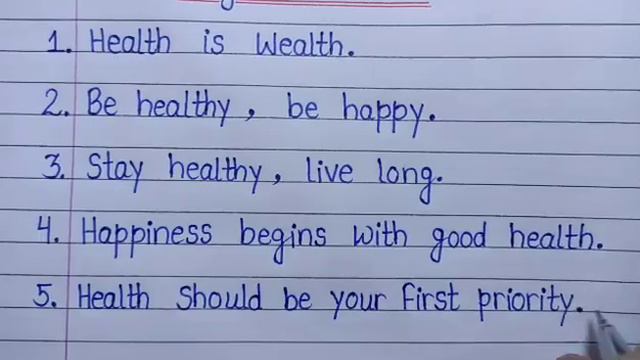 1. Health is Wealth.
2. Be healthy, be happy.
3. Stay healthy, live long.
4. Happiness begins with good health.
5. Health Should be your first priority.